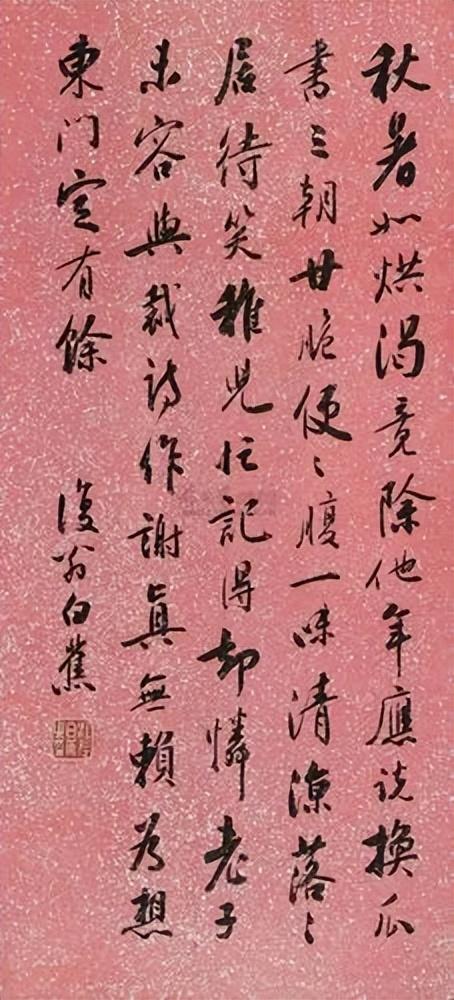 秋暑如烘渴竟除他年應說換瓜
書三朝甘脆便〻腹一味清涼落〻
居待笑稚兒忙記得却憐老子
未容與裁詩作謝真無賴為想
東门定有餘
復翁白蕉